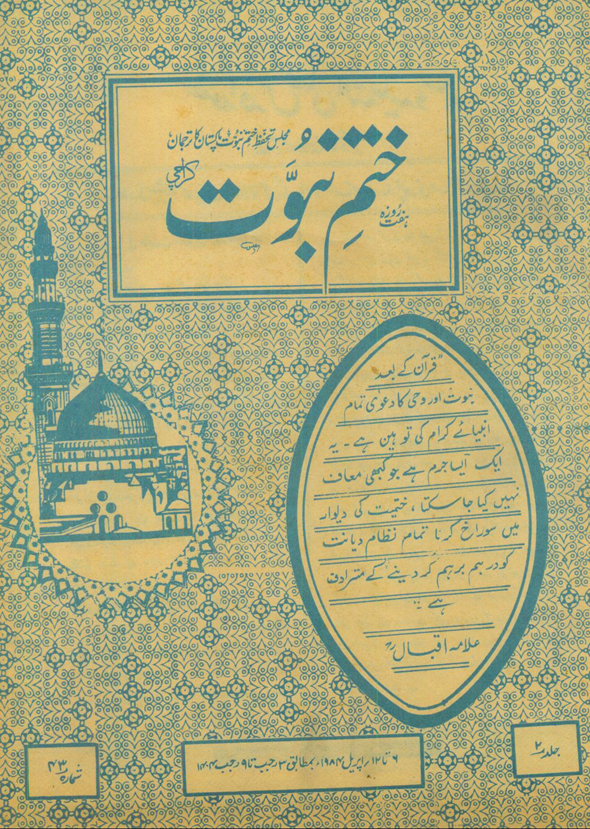 مجلس تحفظ ختم نبوت پاکستان کا ترجمان
ہفت روزہ
ختمِ نبوّت
کراچی
"قرآن کے بعد
نبوت اور وحی کا دعویٰ تمام
انبیائے کرام کی توہین ہے۔ یہ
ایک ایسا جرم ہے جو کبھی معاف
نہیں کیا جا سکتا، ختمیت کی دیوار
میں سوراخ کرنا تمام نظام دیانت
کو درہم برہم کر دینے کے مترادف
ہے"
علامہ اقبالؒ
جلد ۲
۶ تا ۱۲ اپریل ۱۹۸۴ء بمطابق ۳ رجب تا ۹ رجب ۱۴۰۴ھ
شمارہ ۴۳